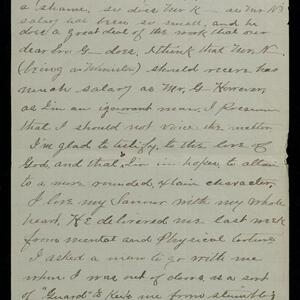 a shame, so does Mr K — as Mr. N's
salary has been so small, and he
does a great deal of the work that our
dear Mr G— does. I think that Mr. N.
(being a Minister) should receive has
much salary as Mr. G— However,
as I'm an ignorant man, I presume
that I should not voice the matter.
I'm glad to testify, to the love of
God, and that I'm in hopes, to attain
to a more rounded, & plain character.
I love my Saviour with my whole
heart, HE delivered me last week
from mental and Physical torture.
I asked a man to go with me
when I was out of doors, as a sort
of "Guard" to keep me from stumbling